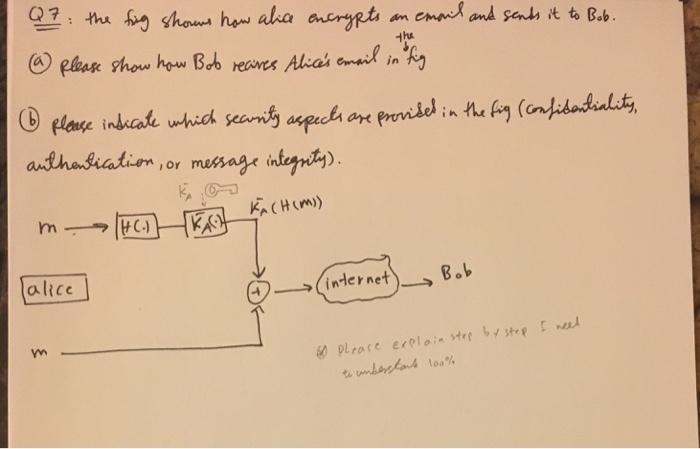 Q7: the fig shows how alice encrypts an email and sends it to Bob.
(a) please show how Bob receives Alice's email in the fig
(b) please indicate which security aspects are provided in the fig (confidentiality,
authentication, or message integrity).
K̄A
m → H(.) K̄A(.) K̄A(H(m))
alice
+ → internet → Bob
m
please explain step by step I need
to understand 100%